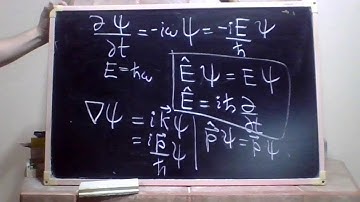 ∂Ψ/∂t = -iωΨ = -iE/ħ Ψ
E = ħω
Ê Ψ = E Ψ
Ê = iħ ∂/∂t
∇Ψ = i k⃗ Ψ
= i p⃗/ħ Ψ
p̂⃗ Ψ = p⃗ Ψ